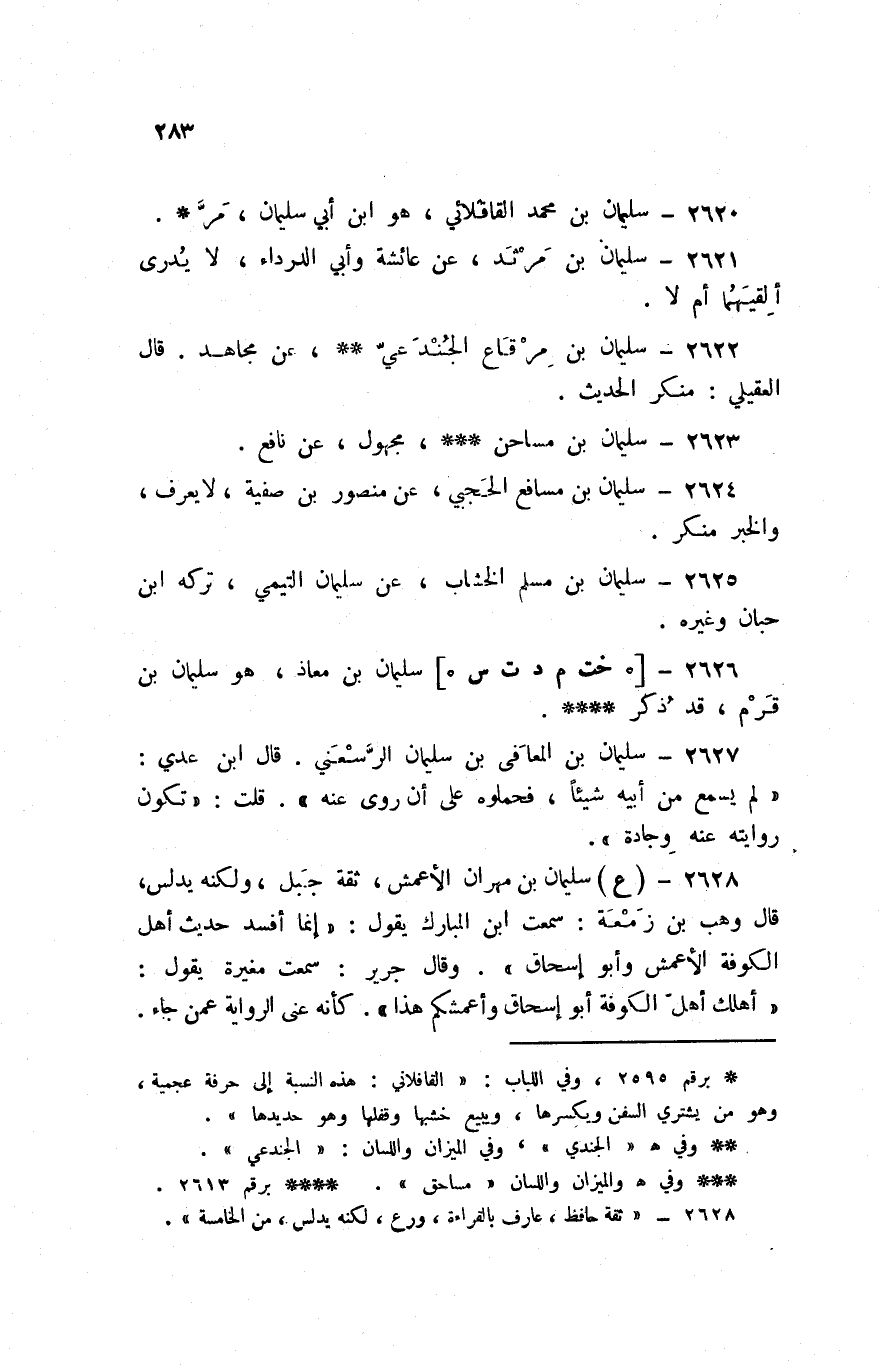 ٢٨٣
٢٦٢٠ – سليمان بن محمد القافلائي ، هو ابن أبي سليمان ، مَرَّ * .
٢٦٢١ – سليمان بن مَرْثَد ، عن عائشة وأبي الدرداء ، لا يُدرى
ألِقيَهُما أم لا .
٢٦٢٢ – سليمان بن مِرْقَاع الجُنْدَعيّ ** ، عن مجاهد . قال
العقيلي : منكر الحديث .
٢٦٢٣ – سليمان بن مساحن *** ، مجهول ، عن نافع .
٢٦٢٤ – سليمان بن مسافع الحَجبي ، عن منصور بن صفية ، لا يعرف ،
والخبر منكر .
٢٦٢٥ – سليمان بن مسلم الخشاب ، عن سليمان التيمي ، تركه ابن
حبان وغيره .
٢٦٢٦ – [ ه خت م د ت س ه ] سليمان بن معاذ ، هو سليمان بن
قَرْم ، قد ذُكر **** .
٢٦٢٧ – سليمان بن المعافى بن سليمان الرَّسْعَني . قال ابن عدي :
« لم يسمع من أبيه شيئاً ، فحملوه على أن روى عنه » . قلت : « تكون
روايته عنه وِجادة » .
٢٦٢٨ – ( ع ) سليمان بن مهران الأعمش ، ثقة جَبل ، ولكنه يدلس ،
قال وهب بن زَمْعَة : سمعت ابن المبارك يقول : « إنما أفسد حديث أهل
الكوفة الأعمش وأبو إسحاق » . وقال جرير : سمعت مغيرة يقول :
« أهلك أهلَ الكوفة أبو إسحاق وأعمشكم هذا » . كأنه عنى الرواية عمن جاء .
* برقم ٢٥٩٥ ، وفي اللباب : « القافلاني : هذه النسبة إلى حرفة عجمية ،
وهو من يشتري السفن ويكسرها ، ويبيع خشبها وقفلها وهو حديدها » .
** وفي ه « الجندي » ، وفي الميزان واللسان : « الجندعي » .
*** وفي ه والميزان واللسان « مساحق » . **** برقم ٢٦١٣ .
٢٦٢٨ – « ثقة حافظ ، عارف بالقراءة ، ورع ، لكنه يدلس ، من الخامسة » .